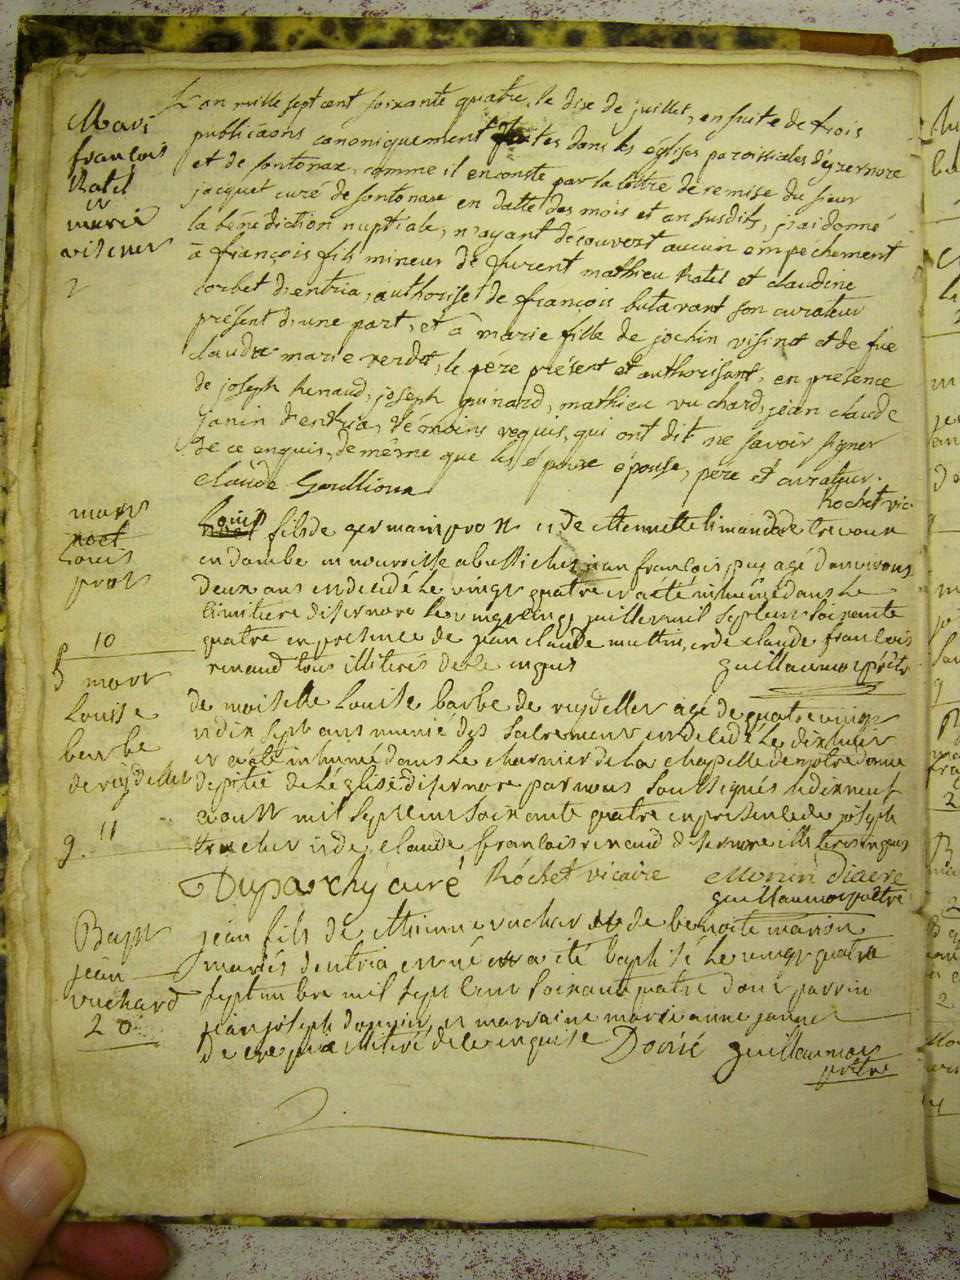 Mari
françois
Ratel
et
marie
visinet
7
L'an mille sept cent soixante quatre, le dix de juillet, ensuite de trois
publicaõns canoniquement faites dans les eglises paroissiales d'yzernore
et de sontonax, comme il en conste par la lettre de remise du sieur
jacquet curé de sontonax en datte des mois et an susdits, j'ai donné
la bénédiction nuptiale, n'ayant découvert aucun empechement
à françois fils mineur de mathieu Ratel et claudine
corbet d'entria, authorisé de françois butavant son curateur
présent d'une part, et à marie fille de jochin visinet et de fue
claude marie verdet, le père présent et authorisant, en présence
de joseph Renaud, joseph guinard, mathieu vuchard, jean claude
janin d'entria, témoins requis, qui ont dit ne savoir signer
de ce enquis, de même que les époux épouse, père et curateur.
claude Goullioux
Rochet vic
mort
noel
Louis
prost
10
Louis fils de germain prost et de ettennette limandade trevoux
en dombe en nourisse a bussi ches jean françois puy agé d'environs
deux ans est decedé le vingt quatre et a été inhumé dans le
cimitiere disernore le vingt cinq juillet mil sept cent soixante
quatre en presence de jean claude muttin, et de claude francois
renaud tous illiterés de ce enquis guillaumot pretre
mort
Louise
barbe
de ruydellet
11
de moiselle Louise barbe de ruydellet agé de quatre vingt
et dix sept ans munié des sacrements est decedé le dix huit
et a été inhumé dans le charnier de la chapelle de notre dame
de pitié de l'église disernore par nous soussignés le dix neuf
aoust mil sept cent soixante quatre en presence de joseph
et de claude francois renaud disernore illiteres enquis
Duparchy curé Rochet vicaire Monin diacre
guillaumot pretre
Bapt
jean
vuchard
20
jean fils de ettienne vuchard et de benoite marion
mariés dentria est né et a été baptisé le vingt quatre
septembre mil sept cent soixante quatre dont parrin
jean joseph et marraine marie anne
de ce illiteré de ce enquise guillaumot
pretre